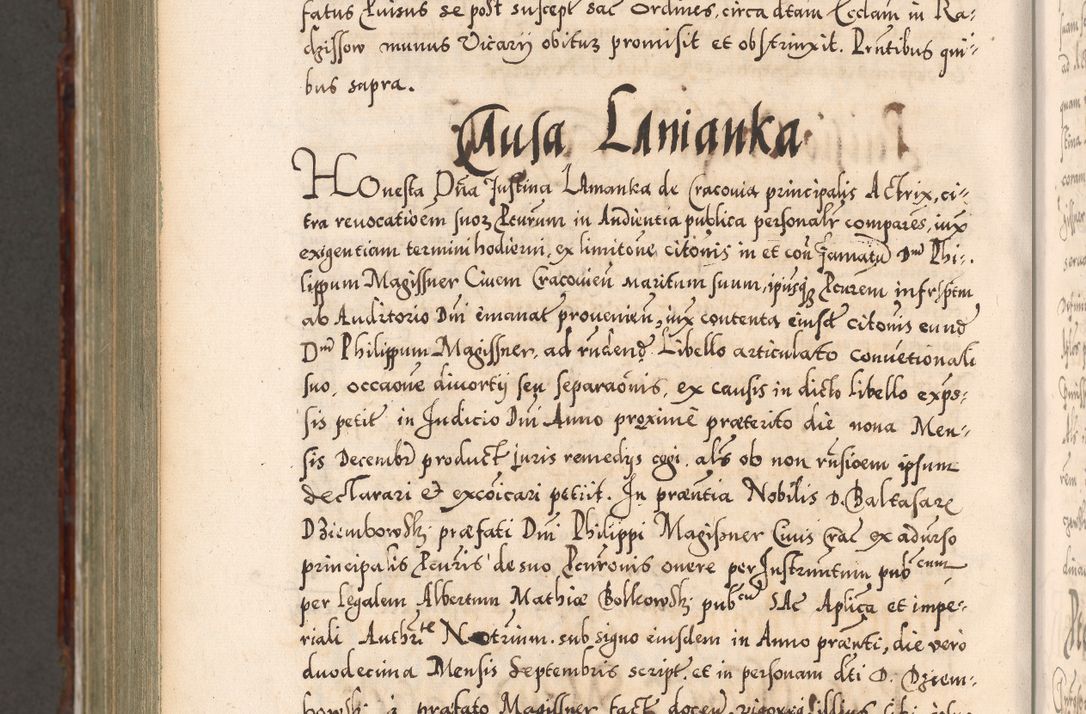 fatus Cuisus se post suscept sac Ordines, circa dtam Ecclam in Ra-
dzissow munus Vicarij obituz promisit et obstrinxit. Pntibus qui-
bus sapra.
Causa Lanianka
Honesta Dña Justina Lamanka de Cracouia principalis Actrix, ci-
tra revocatioem suoz Pcurum in Audientia publica personalr compares, iux
exigentiam termini hodierni, ex limitone citonis in et con famatu Dnu Phi-
lippum Magissner Ciuem Cracouien maritum suum, ipusq Pcurem infrsptm
ab Auditorio Dni emanat provenien, iux contenta eiusd citonis eund
Dnu Philippum Magissner, ad rndend Libello articulato convetionali
suo, occaone divortij seu separaonis, ex causis in dicto libello expos-
sis petit in Judicio Dni Anno proxime præterito die nona Men-
sis Decembr product juris remedijs cogi, als ob non rnsioem ipsum
declarari et excoicari petijt. In præntia Nobilis D. Baltasare
Dziembowski præfati Dni Philippi Magissner Ciuis Crac ex aduerso
principalis Pcuris de suo Pcuronis onere per Instrumntum pubcum
per legalem Albertum Mathiæ Bolkowski pubcu SAc Aplica et impe-
riali Authrite Notrium. sub signo eiusdem in Anno prænti, die vero
duodecima Mensis Septembris script. et in personam dti D. Dziem-
præfato Magissner fact docen